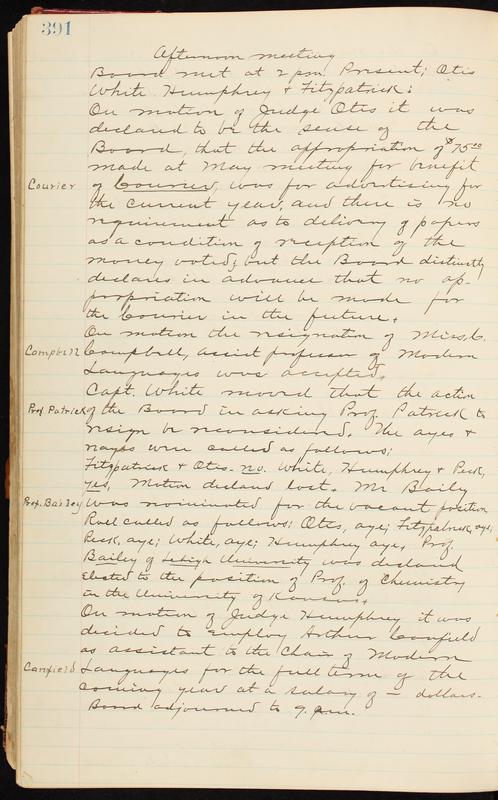 391
Afternoon meeting
Board met at 2 pm Present; Otis
White. Humphrey & Fitzpatrick:
On motion of Judge Otis it was
declared to be the sense of the
Board, that the appropriation of $75.00
made at May meeting for benefit
Courier of Courier, was for advertising for
the current year, and there is no
requirement as to delivery of papers
as a condition of reception of the
money voted; but the Board distinctly
declares in advance that no ap-
propriation will be made for
the Courier in the future.
On motion the resignation of Miss. C.
Campbell Campbell, assist professor of Modern
Languages was accepted.
Capt. White moved that the action
Prof Patrick of the Board in asking Prof. Patrick to
resign be reconsidered. The ayes &
nayes were called as follows:
Fitzpatrick & Otis- no. White, Humphrey & Peck,
yes, Motion declared lost. Mr Baily
Prof. Bailey was nominated for the vacant position
Roll called as follows: Otis, aye; Fitzpatrick, aye;
Peck, aye; White, aye; Humphrey aye, Prof.
Bailey of Lehigh University was declared
elected to the position of Prof. of Chemistry
in the University of Kansas.
On motion of Judge Humphrey it was
decided to employ Arthur Canfield
as assistant to the Chair of Modern
Canfield Languages for the full term of the
coming year at a salary of — dollars.
Board adjourned to 9. a.m.